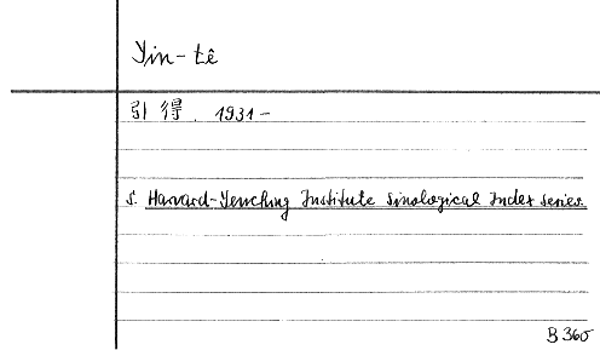 Yin-tê
引得. 1931-
s. Harvard-Yenching Institute Sinological Index series.
B 360